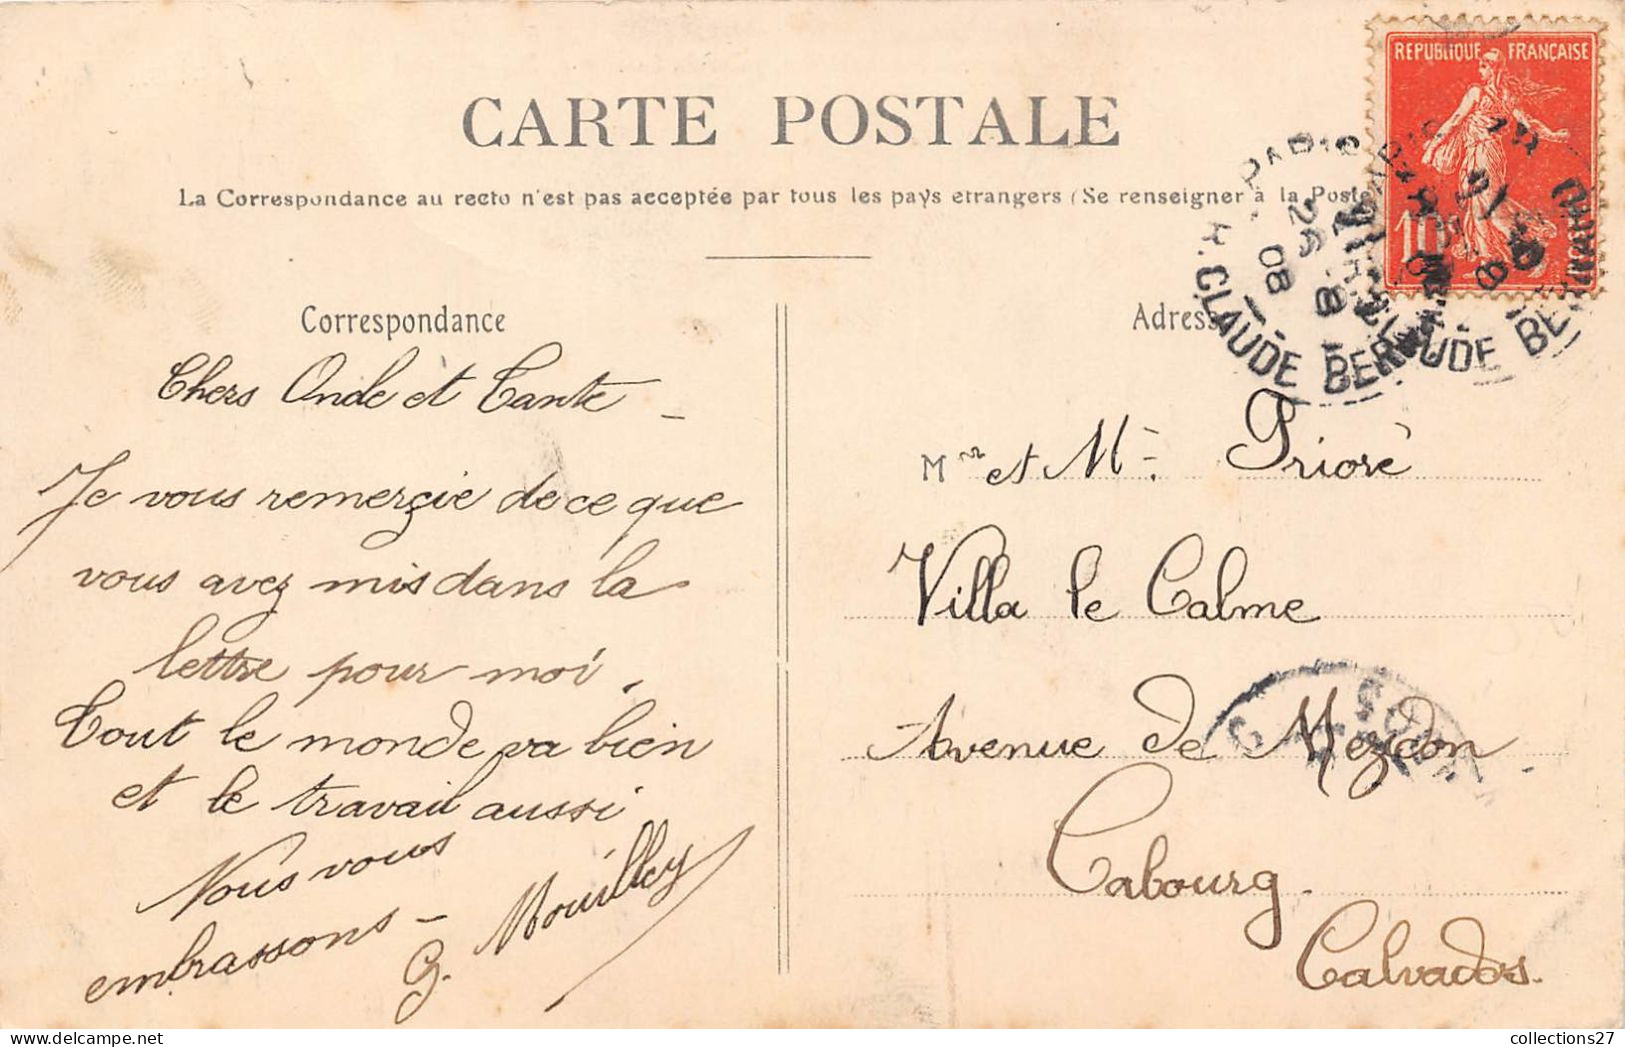 CARTE POSTALE
La Correspondance au recto n'est pas acceptée par tous les pays etrangers (Se renseigner à la Poste
REPUBLIQUE FRANÇAISE
10
PARIS
26 8
08
R. CLAUDE BERNARD
R. CLAUDE BERNARD
Correspondance
Chers Oncle et Tante –
Je vous remerçie de ce que
vous avez mis dans la
lettre pour moi.
Tout le monde va bien
et le travail aussi
Nous vous
embrassons –
G. Mouilley
Adresse
Mr et Mme Prioré
Villa le Calme
Avenue de Mezidon
Cabourg.
Calvados.
collections27